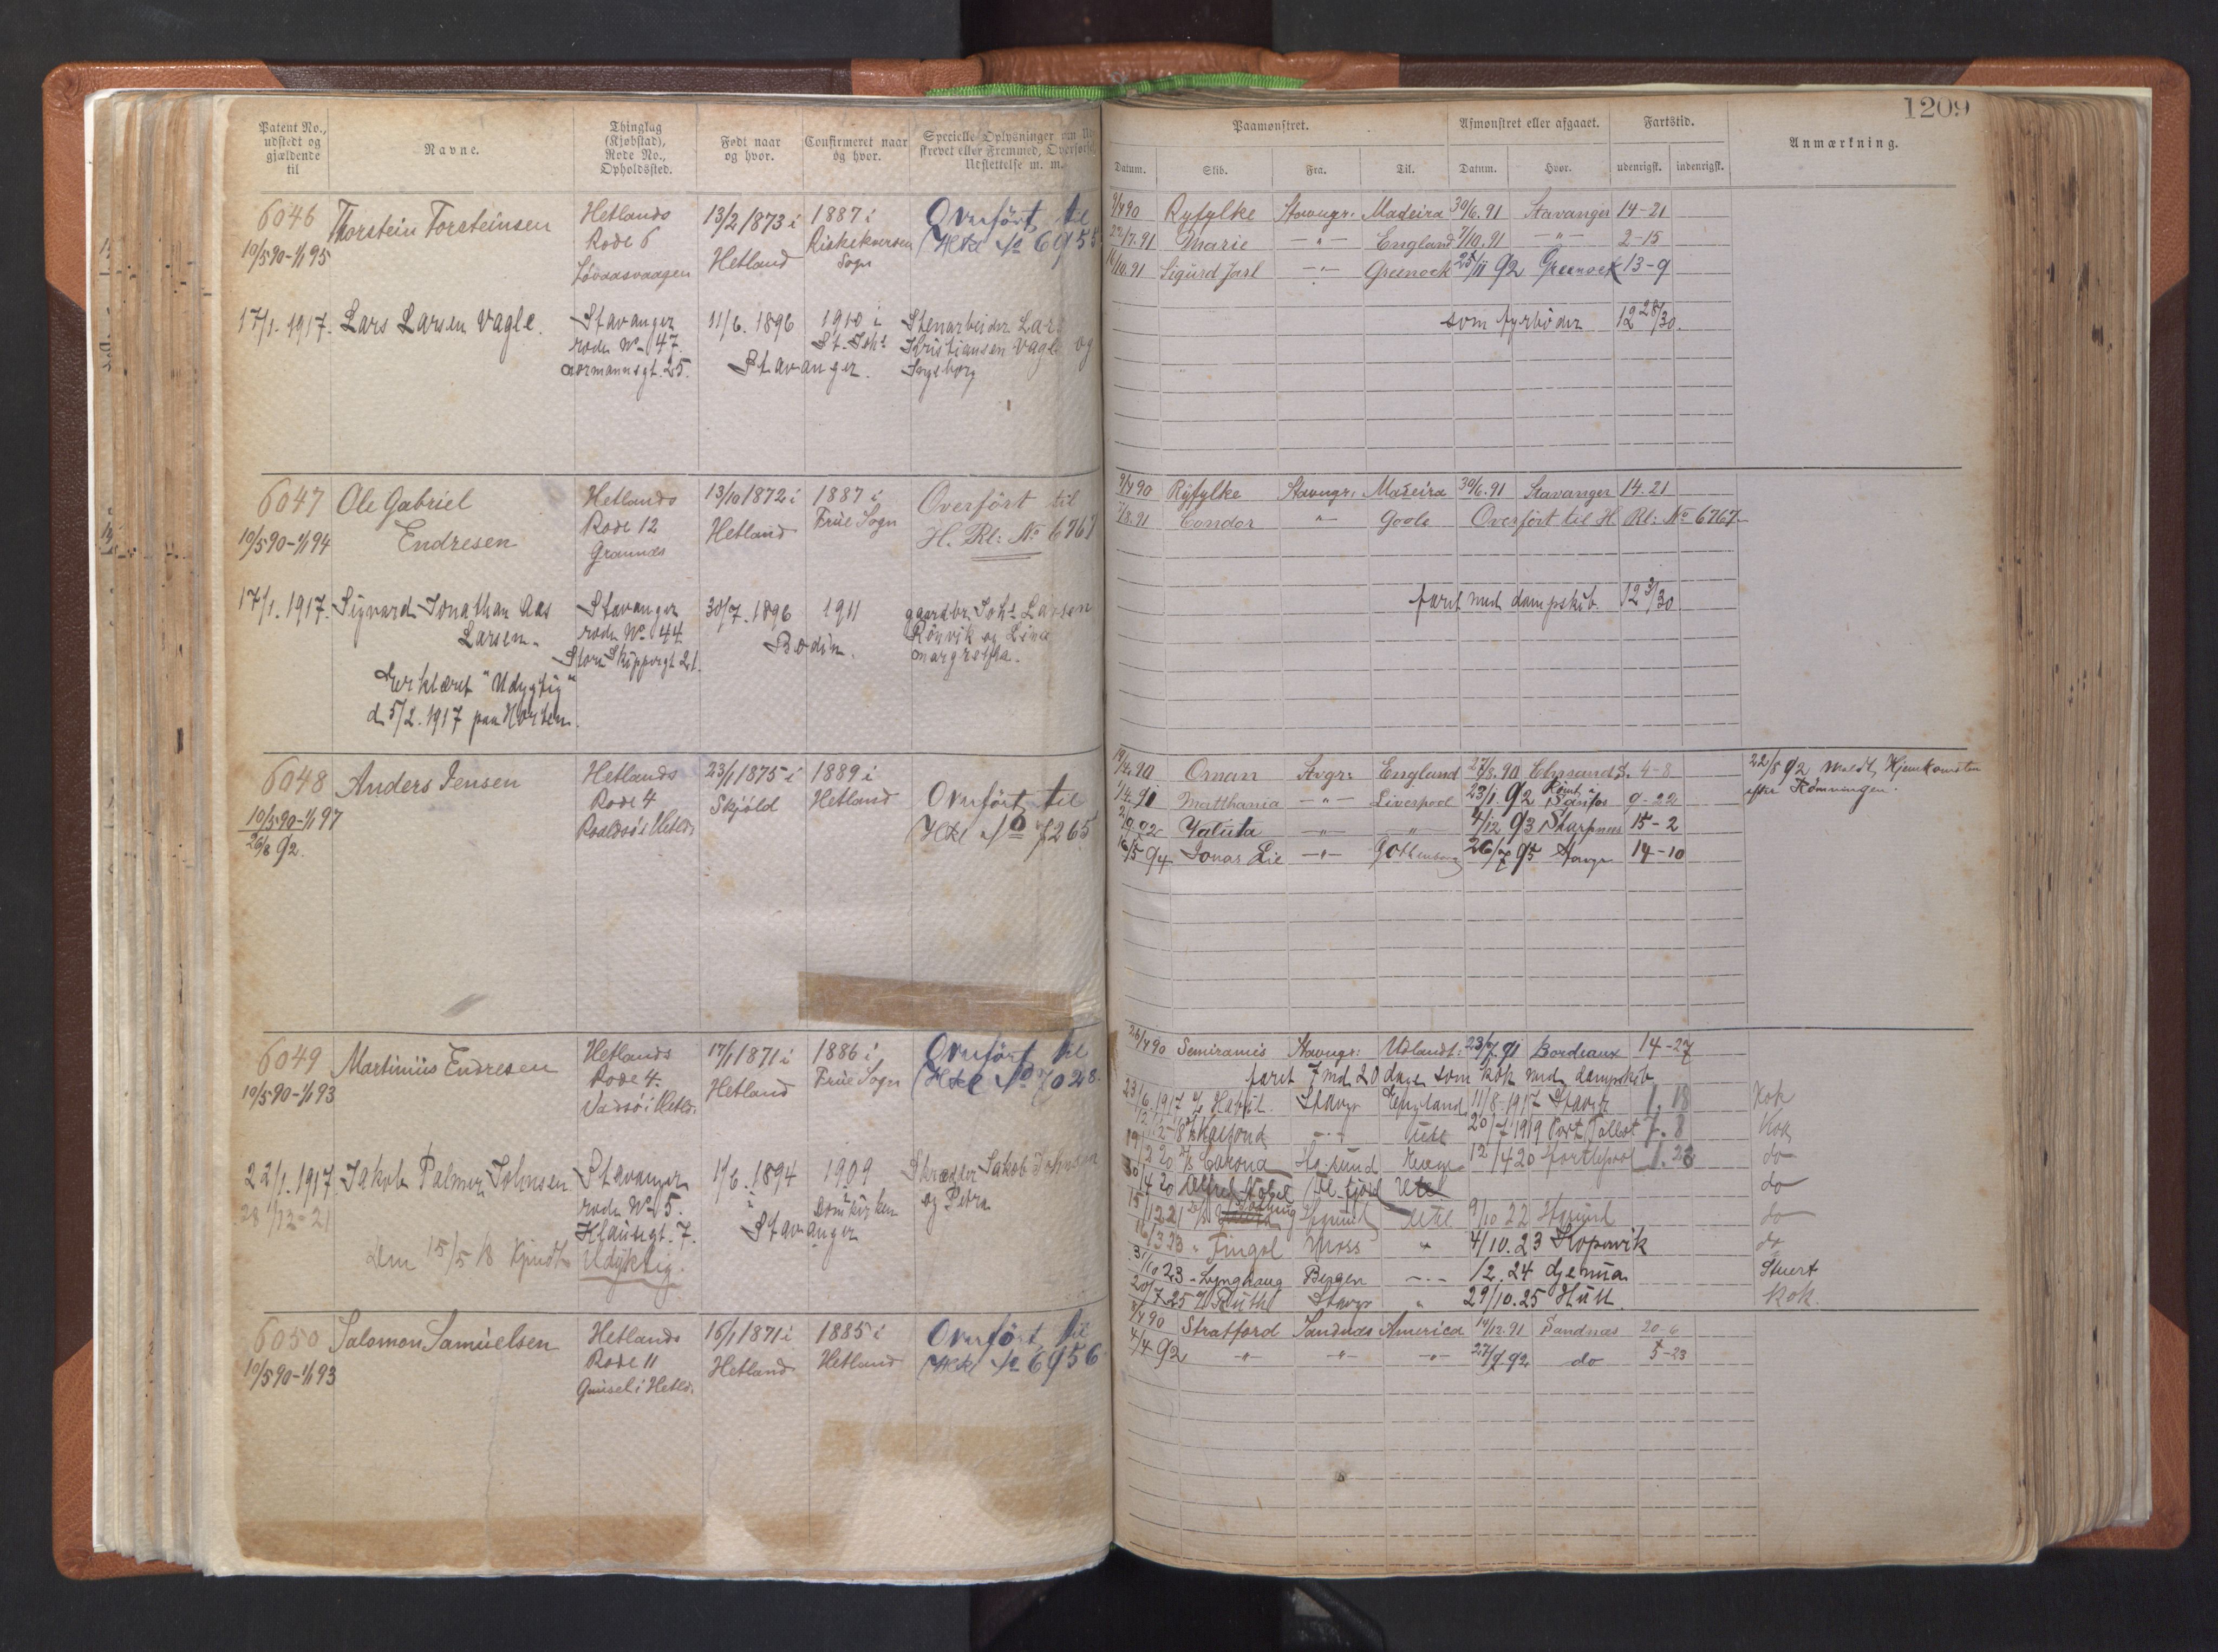 1209
Patent No., udstedt og gjældende til
Navne.
Thinglag (Kjøbstad), Rode No., Opholdssted.
Født naar og hvor.
Confirmeret naar og hvor.
Specielle Oplysninger
skrevet eller Fremmed, Overførsel, Udslettelse m. m.
Paamønstret.
Afmønstret eller afgaaet.
Fartstid.
Anmærkning.
Datum. Skib. Fra. Til. Datum. Hvor. udenrigsk. indenrigsk.
6046 Thorstein Torsteinsen Hetlands 13/2 1873 i 1887 i Overført til
10/5 90-1/1 95 Rode 6 Hetland Sogn Hkl No 6955
9/4 90 Ryfylke Stavngr. Madeira 30/6.91 Stavanger 14-21
22/7.91 Marie -"- England 7/10.91 -"- 2-15
10.91 Sigurd Jarl -"- Greenock 25/11 92 Greenock 13-9
17/1.1917. Lars Larsen Vagle. Stavanger 11/6.1896 1910 i Stenarbeider Lars
rode No 47. St. Johs Kristiansen Vagle og
25. Stavanger. Ingeborg
som fyrbøder 12 28/30.
6047 Ole Gabriel Endresen Hetlands 13/10 1872 i 1887 i Overført til
10/5 90-1/1 94 Rode 12 Hetland Frue Sogn H. Rl: No 6767
Grannæs
9/4 90 Ryfylke Stavngr: Madeira 30/6.91 Stavanger 14.21
7/8.91 Condor " Goole Overført til H. Rl: No 6767
17/1.1917. Sigvard Jonathan Aas Larsen. Stavanger 30/7.1896 1911 gaardbr. Johs Larsen
rode No 44. Bodin. Rønvik og Line
Store Skippergt 21. Margretha.
Erklæret "Udygtig"
d. 5/2.1917 paa Horten.
faret med dampskib. 12 3/30
6048 Anders Jensen Hetlands 23/1 1875 i 1889 i Overført til
10/5 90-1/1 97 Rode 4 Skjold Hetland Hkl No 7265
26/8 92.
19/4.90 Oman Svgr: England 27/8.90 4-8
22/8 92 meldt Hjemkomsten
efter Rømningen.
1/4.91 Matthania -"- Liverpool 23/1.92 Rømt i Santos 9-22
2/9.92 Yaluta -"- " 4/12 93 Sharpness 15-2
16/5 94 Jonas Lie -"- Gothenborg 26/7 95 Stavgr 14-10
6049 Martinius Endresen Hetlands 17/1 1871 i 1886 i Overført til
10/5 90-1/1 93 Rode 4. Hetland Frue Sogn Hkl No 7028.
26/4 90 Semiramis Stavngr: Udlandt: 23/7.91 Bordeaux 14-27
faret 7 md 20 dage som kok med dampskib
22/1.1917. Jakob Palmer Johnsen Stavanger 1/6.1894 1909 Skrædder Jakob Johnsen
28/12-21 rode No 5. i Domkirken og Petra
Klausegt. 7. Stavanger
Den 15/5 18 Kjendt Udyktig.
23/6.1917 Stavgr England 11/8-1917 Stavgr 1.18 Kok
-"- Utl 20/7 1919 Port Talbot 7.8 Kok
Carona Hg.sund 12/4 20 Hartlepool 1.28 do
30/4 20 Alfred Nobel Utl do
15/12 21 Hgsund Utl 9/10 22 Hgsund do
16/3 23 " Fingal Moss " 4/10.23 Kopervik do
3/10 23 - Lynghaug Bergen -"- 1/2.24 Genua Stuert
20/7 25 Ruth Stavgr " 29/10.25 Hull. kok.
6050 Salomon Samuelsen Hetlands 16/1 1871 i 1885 i Overført til
10/5 90-1/1 93 Rode 11 Hetland Hetland Hkl No 6956
8/4 90 Stratford Sandnæs America 14/12.91 Sandnæs 20-6
4/4 92 -"- -"- -"- 27/9.92 do 5-23